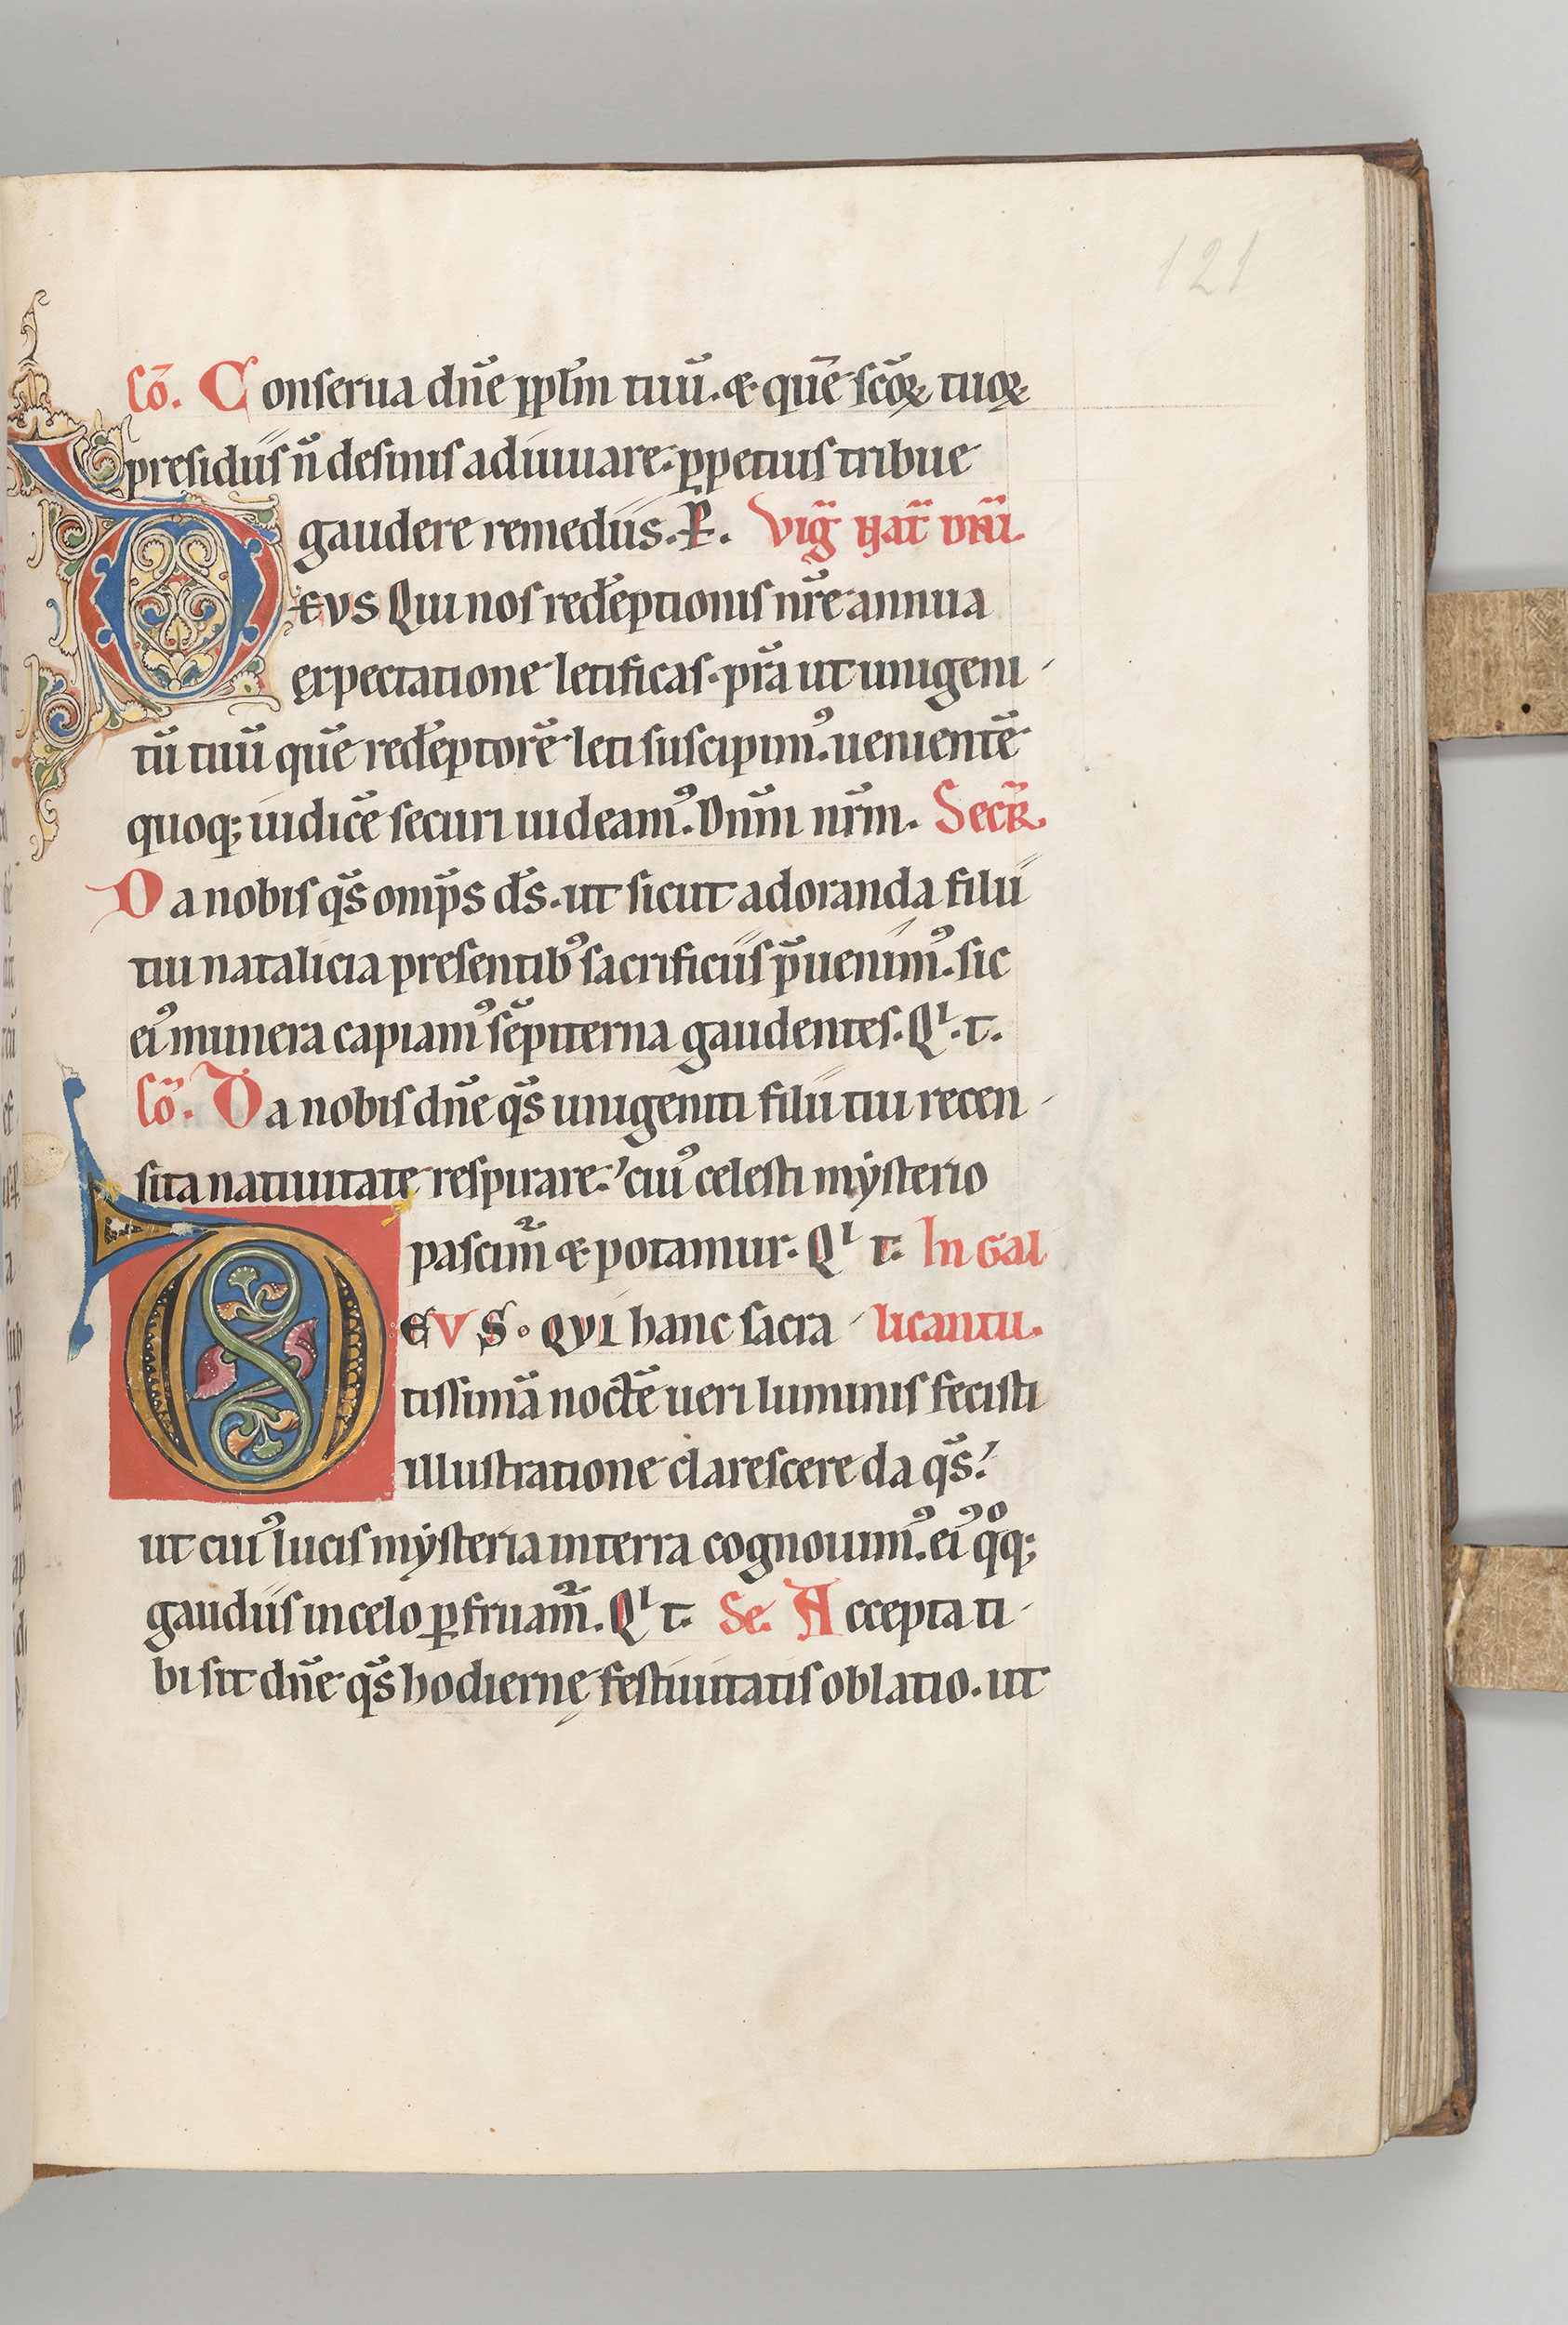 121
Cō. Conserua dn̄e ppl̄m tuū. & quē sc̄oꝝ tuoꝝ
presidiis n̄ desinis adiuuare. ꝑpetuis tribue
gaudere remediis. P. Viḡ Nat̄ Dn̄i.
DEVS Qui nos redēptionis nr̄e annua
expectatione letificas. pr̄a ut unigeni
tū tuū quē redēptorē leti suscipimꝰ. uenientē
quoq; iudicē securi uideamꝰ. Dn̄m nr̄m. Secr̄.
Da nobis qs̄ omp̄s ds̄. ut sicut adoranda filii
tui natalicia presentibꝰ sacrificiis p̄uenimꝰ. sic
eiꝰ munera capiamꝰ sēpiterna gaudentes. Qı. t.
Cō. Da nobis dn̄e qs̄ unigeniti filii tui recen
sita natiuitate respirare. cuiꝰ celesti mẏsterio
pascim̄ & potamur. Qı t. In Gal
DEVS. QVI hanc sacra licantu.
tissimā noctē ueri luminis fecisti
illustratione clarescere da qs̄.
ut cuiꝰ lucis mẏsteria in terra cognouimꝰ. eiꝰ qͦq;
gaudiis in celo ꝑfruam̄. Qı t. Se. Accepta ti
bi sit dn̄e qs̄ hodiernę festiuitatis oblatio. ut